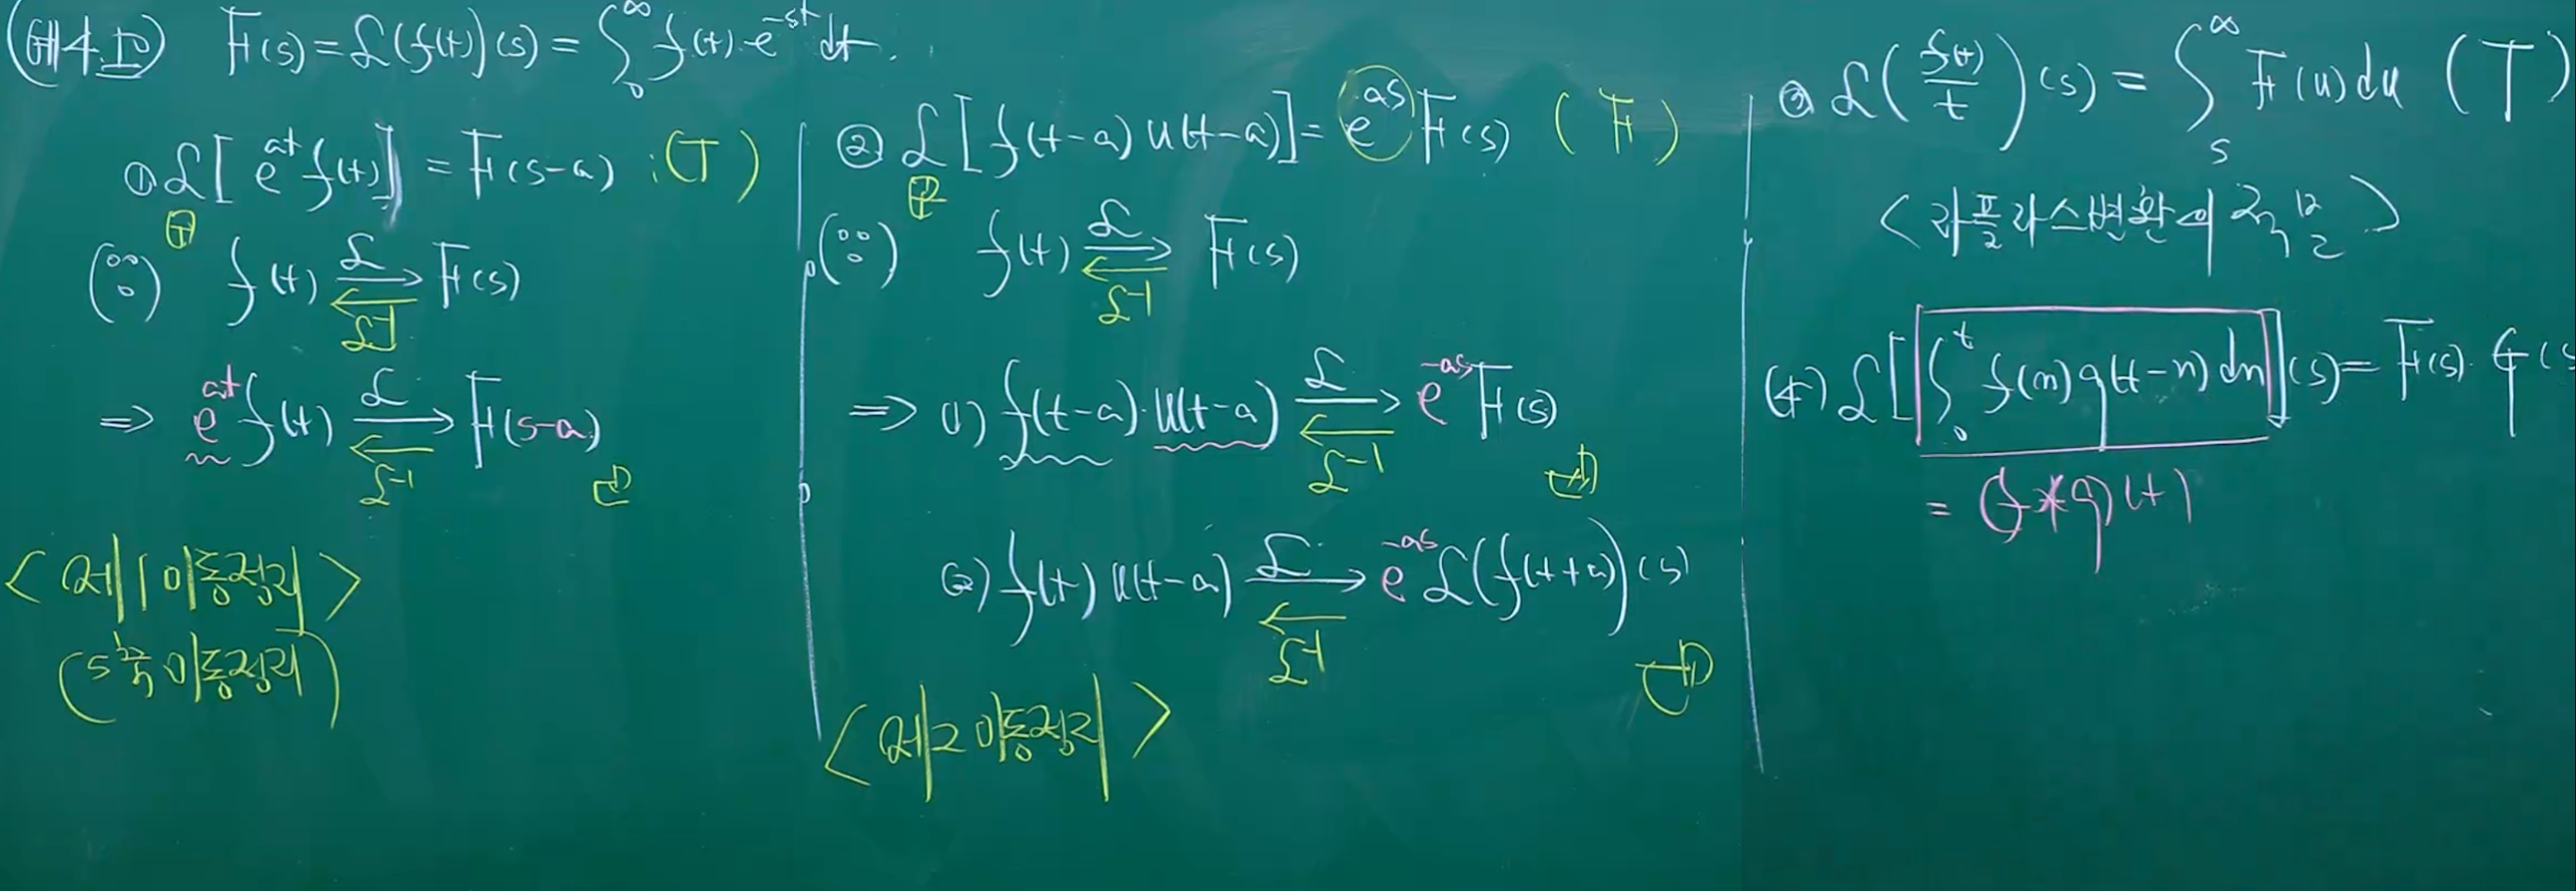 F(s) = ℒ(f(t))(s) = ∫₀^∞ f(t)·e^{-st} dt.
① ℒ[e^{at} f(t)] = F(s-a) : (T)
(∵) f(t) ⇄ F(s)
ℒ
ℒ⁻¹
⇒ e^{at} f(t) ⇄ F(s-a)
ℒ
ℒ⁻¹
<제1이동정리>
(s축이동정리)
② ℒ[f(t-a) u(t-a)] = e^{as} F(s) (F)
(∵) f(t) ⇄ F(s)
ℒ
ℒ⁻¹
⇒ (1) f(t-a)·u(t-a) ⇄ e^{-as} F(s)
ℒ
ℒ⁻¹
(2) f(t) u(t-a) ⇄ e^{-as} ℒ(f(t+a))(s)
ℒ
ℒ⁻¹
<제2이동정리>
③ ℒ(f(t)/t)(s) = ∫ₛ^∞ F(u) du (T)
<라플라스변환의 적분>
(4) ℒ[∫₀^t f(n) g(t-n) dn](s) = F(s)·G(s
= (f*g)(t)